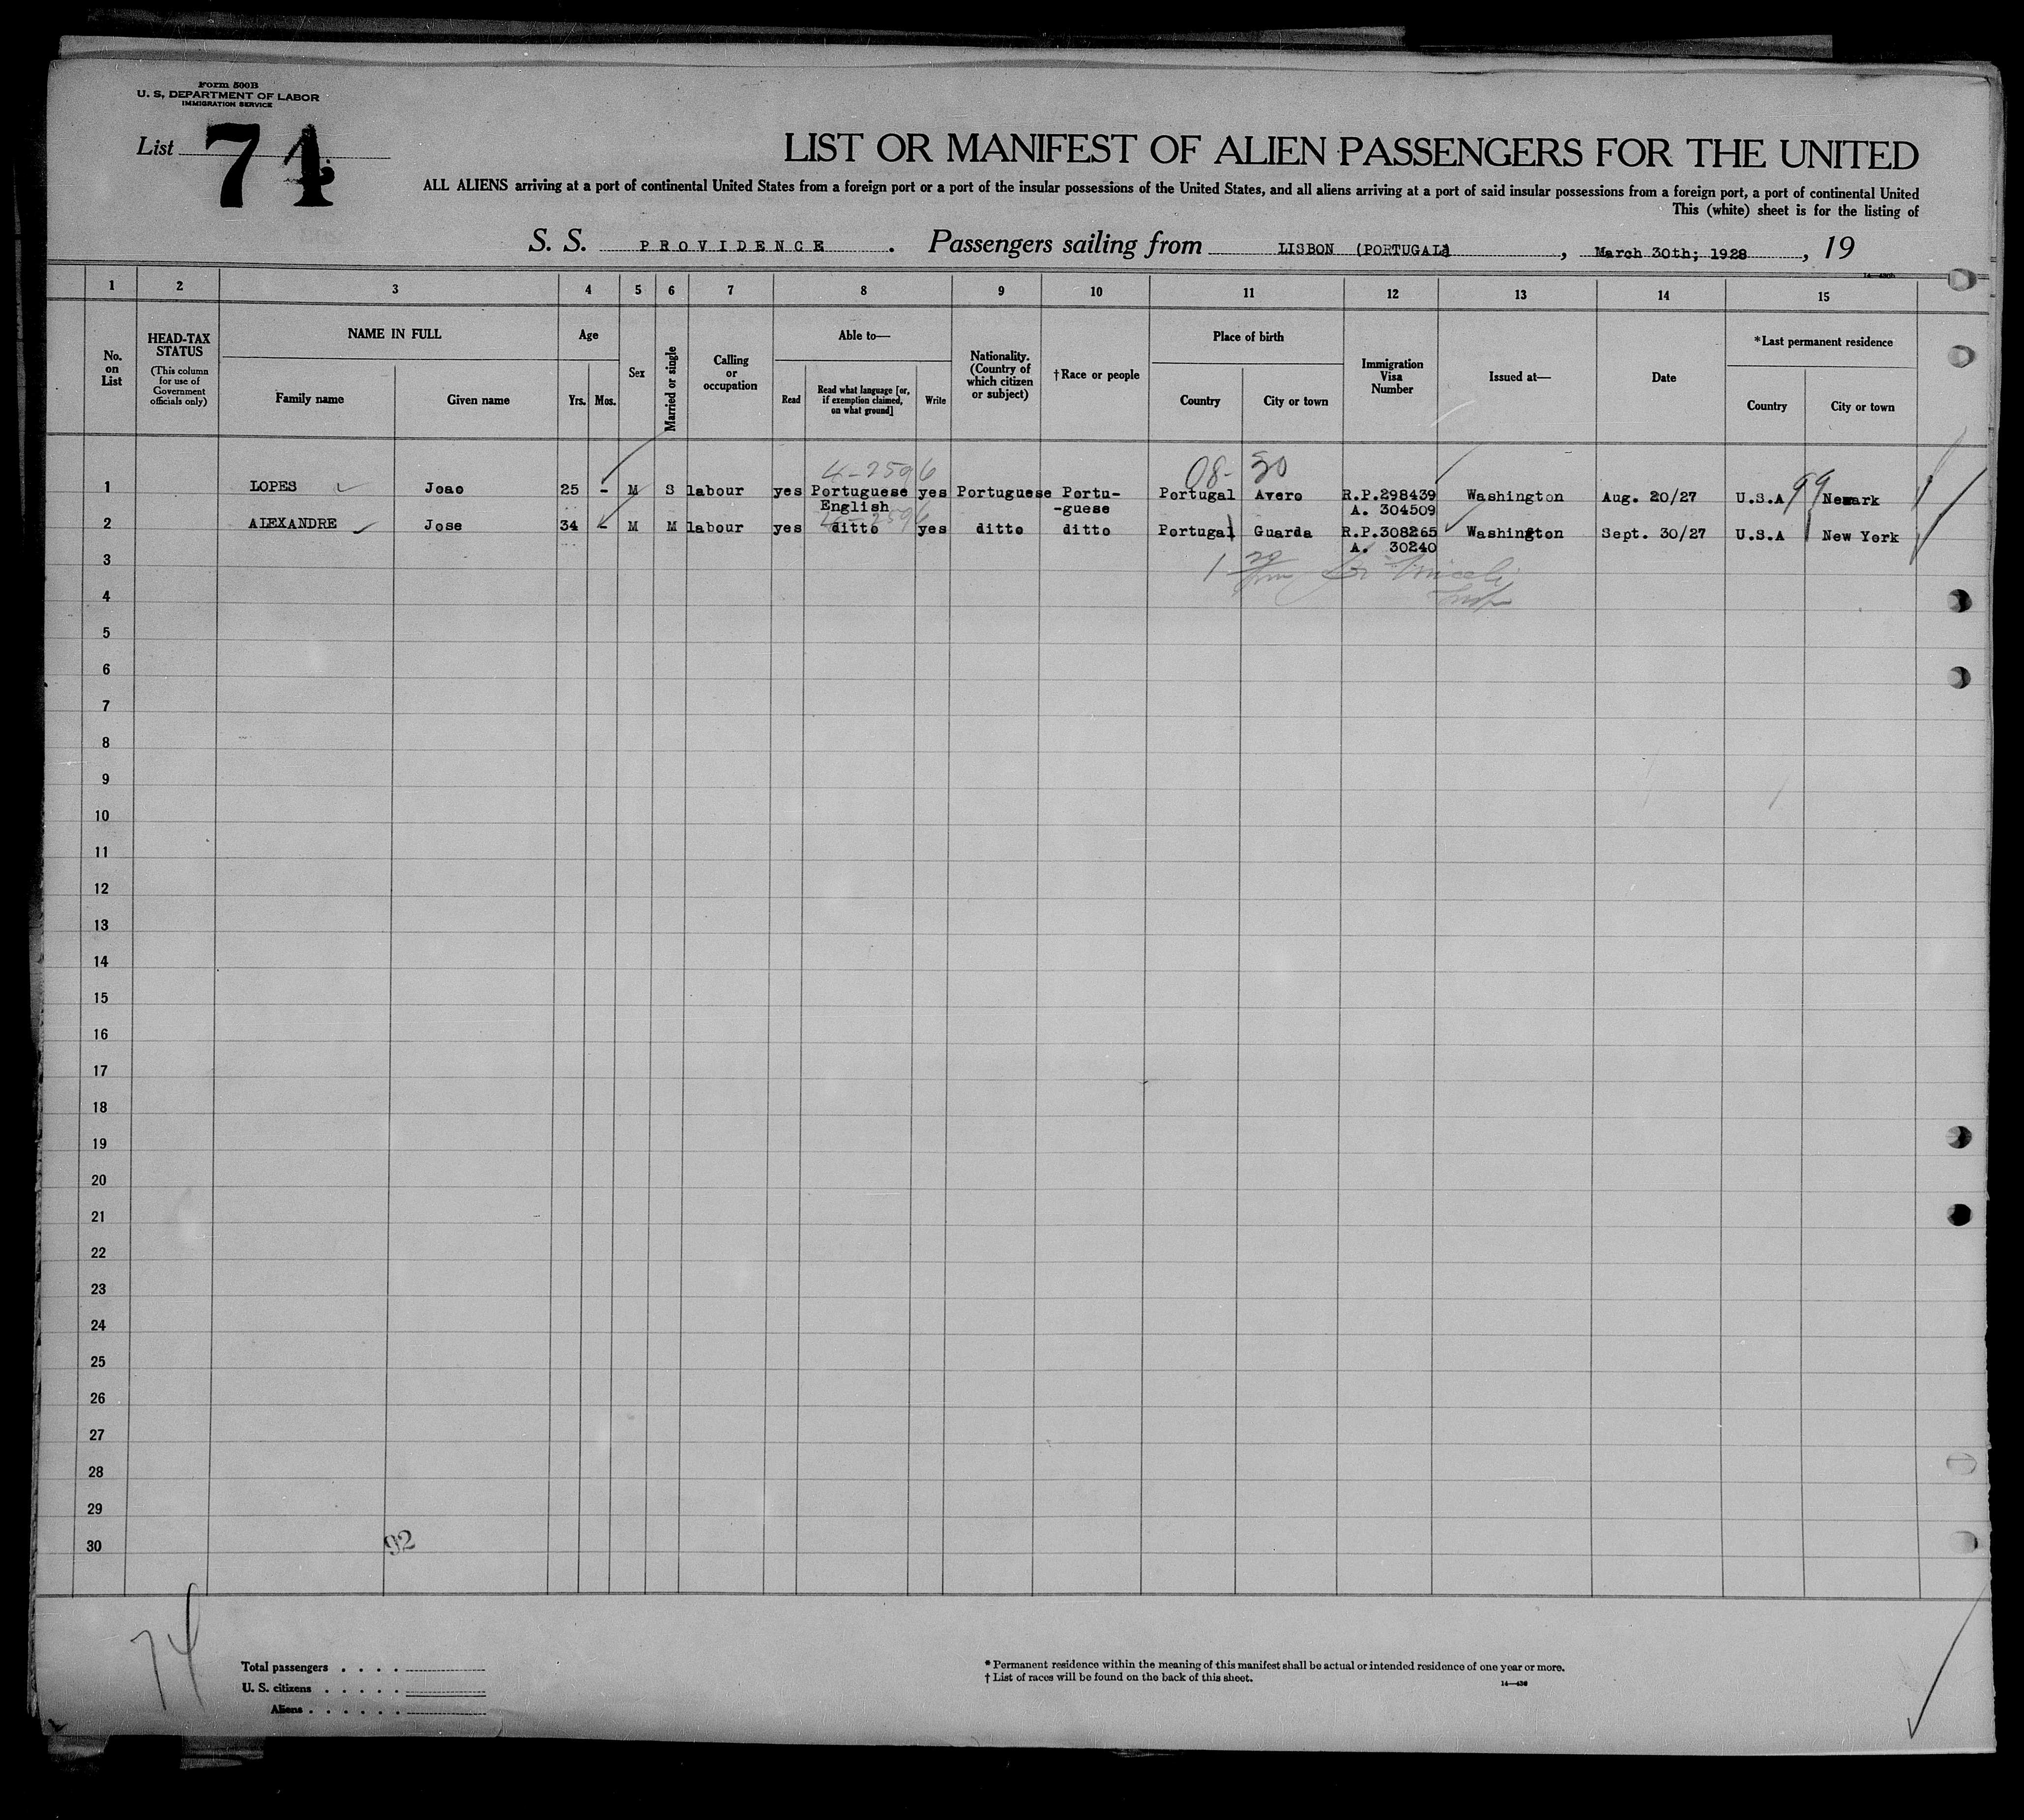 Form 500B
U. S. DEPARTMENT OF LABOR
IMMIGRATION SERVICE
List 74
LIST OR MANIFEST OF ALIEN PASSENGERS FOR THE UNITED
ALL ALIENS arriving at a port of continental United States from a foreign port or a port of the insular possessions of the United States, and all aliens arriving at a port of said insular possessions from a foreign port, a port of continental United
This (white) sheet is for the listing of
S. S. PROVIDENCE. Passengers sailing from LISBON (PORTUGAL), March 30th; 1928, 19
1 2 3 4 5 6 7 8 9 10 11 12 13 14 15
No. on List
HEAD-TAX STATUS
(This column for use of Government officials only)
NAME IN FULL
Family name
Given name
Age
Yrs. Mos.
Sex
Married or single
Calling or occupation
Able to—
Read
Read what language [or, if exemption claimed, on what ground]
Write
Nationality. (Country of which citizen or subject)
†Race or people
Place of birth
Country
City or town
Immigration Visa Number
Issued at—
Date
*Last permanent residence
Country
City or town
4-2596 08- 30
1 LOPES Joao 25 - M S labour yes Portuguese yes Portuguese Portu- Portugal Avero R.P.298439 Washington Aug. 20/27 U.S.A 99 Newark
English -guese A. 304509
4-2596
2 ALEXANDRE Jose 34 - M M labour yes ditto yes ditto ditto Portugal Guarda R.P.308265 Washington Sept. 30/27 U.S.A New York
A. 30240
3
4
5
6
7
8
9
10
11
12
13
14
15
16
17
18
19
20
21
22
23
24
25
26
27
28
29
30
92
74
Total passengers . . . .
U. S. citizens . . . . .
Aliens . . . . . .
* Permanent residence within the meaning of this manifest shall be actual or intended residence of one year or more.
† List of races will be found on the back of this sheet.
14—430